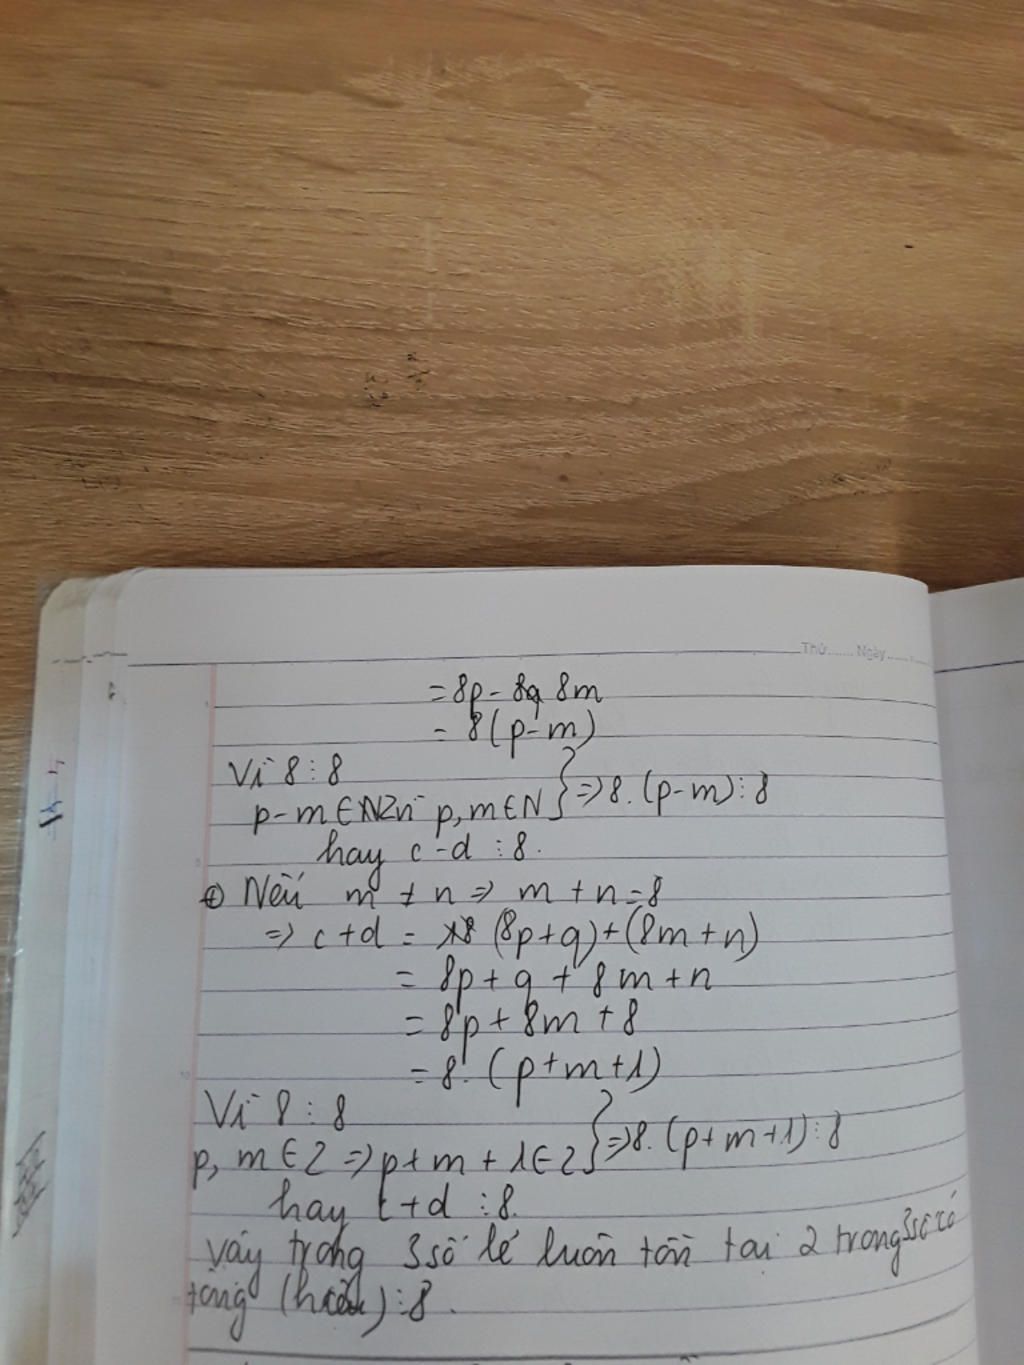 Thứ...... Ngày......
= 8p - 8q 8m
= 8(p-m)
Vì 8 ⋮ 8
p-m ∈ Vì p, m ∈ N } => 8. (p-m) ⋮ 8
hay c-d ⋮ 8.
⊕ Nếu m ≠ n => m + n = 8
=> c+d = (8p+q)+(8m+n)
= 8p + q + 8m + n
= 8p + 8m + 8
= 8. (p+m+1)
Vì 8 ⋮ 8
p, m ∈ Z => p+m+1 ∈ Z } => 8. (p+m+1) ⋮ 8
hay c+d ⋮ 8.
Vậy trong 3 số lẻ luôn tồn tại 2 trong 3 số có
tổng (hiệu) ⋮ 8.